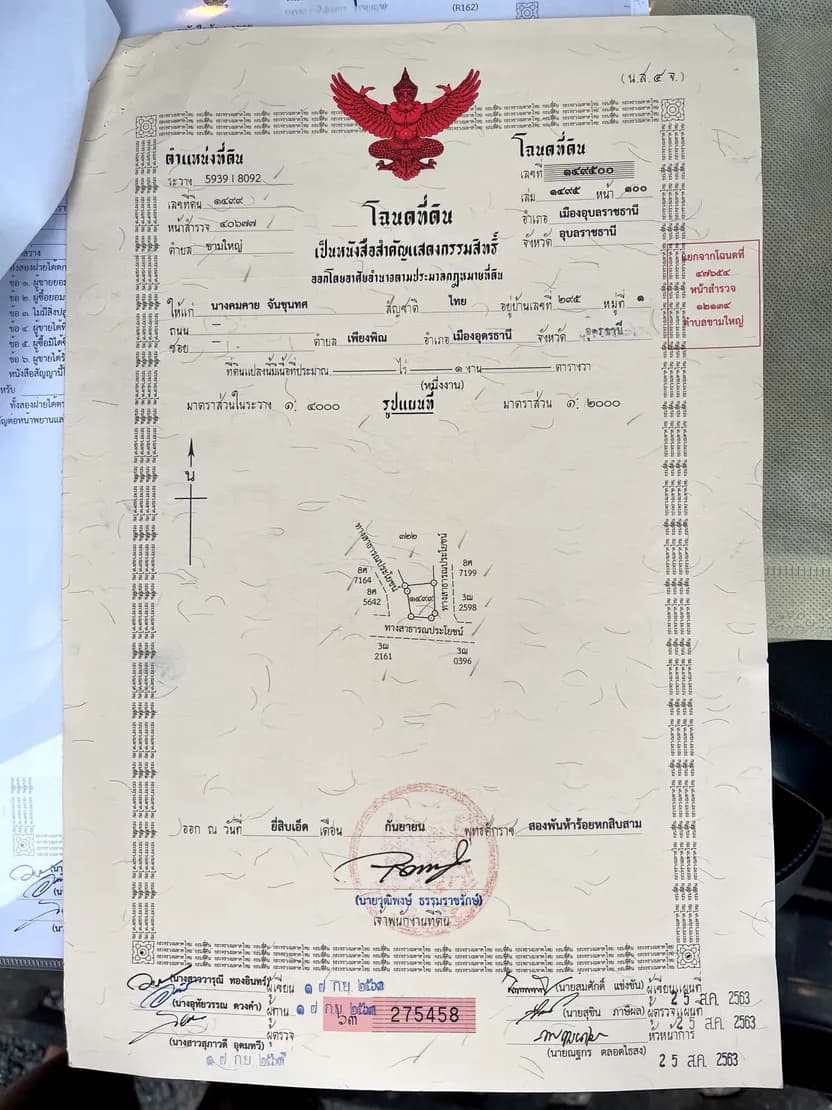 (R162)
(น.ส.๔ จ.)
ตำแหน่งที่ดิน
ระวาง 5939 I 8092
เลขที่ดิน ๑๔๙๙
หน้าสำรวจ ๔๐๖๗๗
ตำบล ขามใหญ่
โฉนดที่ดิน
เลขที่ ๑๔๙๕๐๐
เล่ม ๑๔๙๕ หน้า ๑๐๐
อำเภอ เมืองอุบลราชธานี
จังหวัด อุบลราชธานี
โฉนดที่ดิน
เป็นหนังสือสำคัญแสดงกรรมสิทธิ์
ออกโดยอาศัยอำนาจตามประมวลกฎหมายที่ดิน
แยกจากโฉนดที่
๔๗๖๕๔
หน้าสำรวจ
๑๒๑๓๔
ตำบลขามใหญ่
ให้แก่ นางคมคาย จันขุนทศ สัญชาติ ไทย อยู่บ้านเลขที่ ๒๙๕ หมู่ที่ ๑
ถนน –
ซอย – ตำบล เพียงพิณ อำเภอ เมืองอุดรธานี จังหวัด อุดรธานี
ที่ดินแปลงนี้มีเนื้อที่ประมาณ ไร่ ๑ งาน ตารางวา
(หนึ่งงาน)
มาตราส่วนในระวาง ๑: ๔๐๐๐ รูปแผนที่ มาตราส่วน ๑: ๒๐๐๐
น
ทางสาธารณประโยชน์
๗๒๒
ทางสาธารณประโยชน์
8ศ
7164
8ศ
7199
8ศ
5642
๑๔๙๙
3ฌ
2598
ทางสาธารณประโยชน์
3ฌ
2161
3ฌ
0396
ออก ณ วันที่ ยี่สิบเอ็ด เดือน กันยายน พุทธศักราช สองพันห้าร้อยหกสิบสาม
(นายวุฒิพงษ์ ธรรมราชรักษ์)
เจ้าพนักงานที่ดิน
(นางสาววารุณี ทองอินทร์) ผู้เขียน ๑ ๗ ก.ย. ๒๕๖๓
(นางอุทัยวรรณ ดวงคำ) ผู้ทาน ๑ ๗ ก.ย. ๒๕๖๓
ผู้ตรวจ
(นางสาวสุภาวดี อุดมทวี)
๑ ๗ ก.ย ๒๕๖๓
๖๓ 275458
(นายสมศักดิ์ แข่งขัน) ผู้เขียนแผนที่
2 5 ส.ค. 2563
(นายสุขิน ภาษีผล) ผู้ตรวจแผนที่
2 5 ส.ค. 2563
หัวหน้าการ
(นายณฐกร ตลอดไธสง) 2 5 ส.ค. 2563